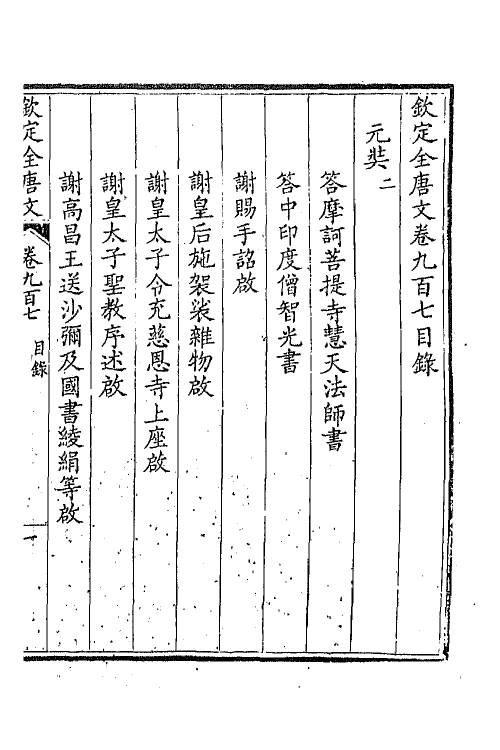 欽定全唐文卷九百七目錄
元奘二
答摩訶菩提寺慧天法師書
答中印度僧智光書
謝賜手詔啟
謝皇后施袈裟雜物啟
謝皇太子令充慈恩寺上座啟
謝皇太子聖教序述啟
謝高昌王送沙彌及國書綾絹等啟
欽定全唐文
卷九百七
目錄
一